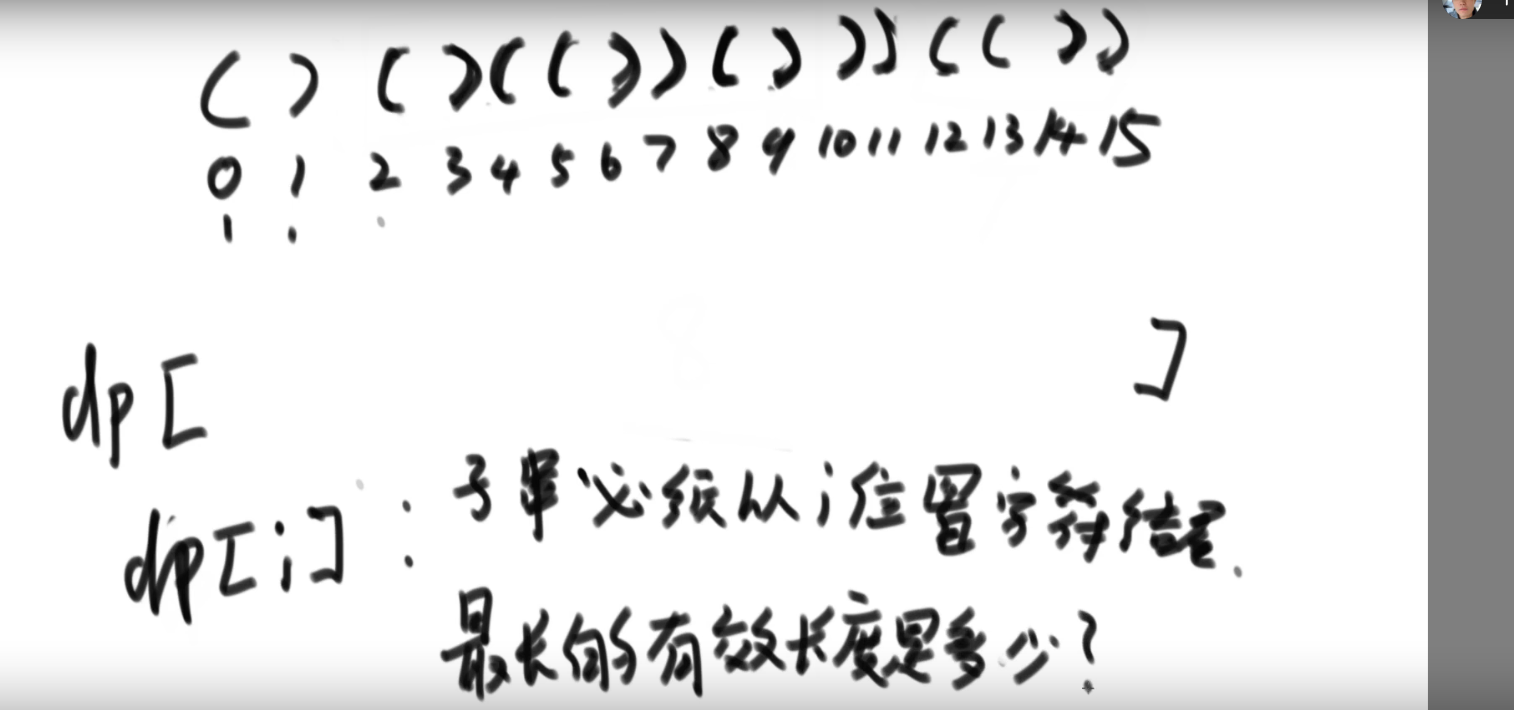 ( ) ( ) ( ( ) ) ( ) ) ) ( ( ) )
0 1 2 3 4 5 6 7 8 9 10 11 12 13 14 15
dp [ ]
dp[i] : 子串必须从i位置字符结尾.
最长的有效长度是多少?